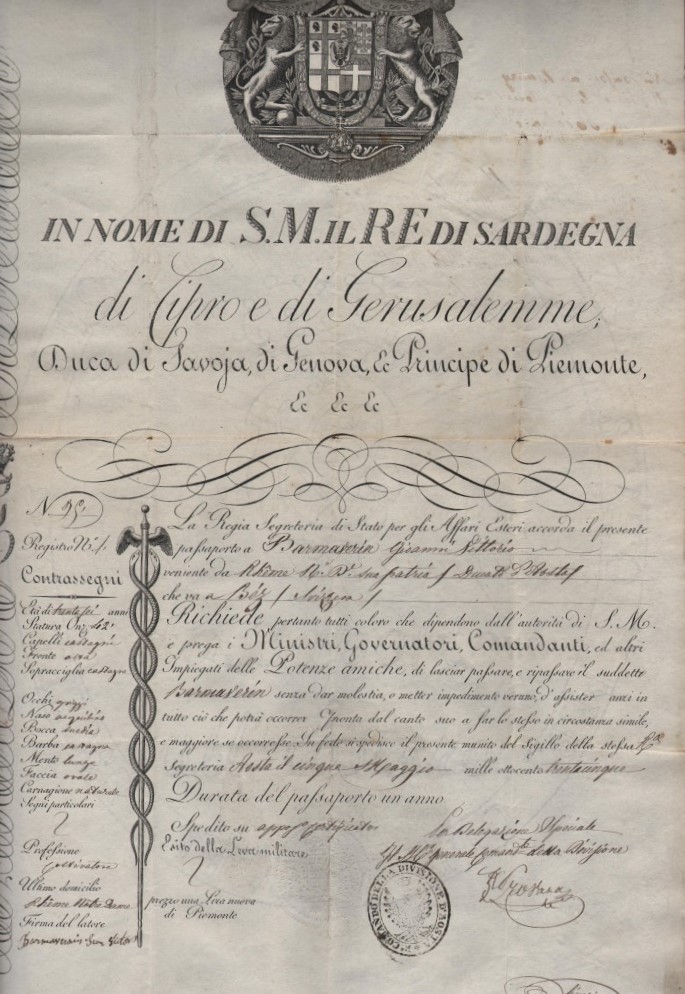 IN NOME DI S.M. IL RE DI SARDEGNA
di Cipro e di Gerusalemme,
Duca di Savoja, di Genova, Ec Principe di Piemonte,
Ec Ec Ec
N. 95
Registro N. 1.
Contrassegni
Età di trentasei anni
Statura On. 42
Capelli castagni
Fronte
Sopracciglia castagne
Occhi grigi
Naso aquilino
Bocca
Barba castagna
Mento lungo
Faccia ovale
Carnagione naturale
Segni particolari
Professione
coltivatore
Ultimo domicilio
Rhême Notre Dame
Firma del latore
La Regia Segreteria di Stato per gli Affari Esteri accorda il presente
passaporto a Barmaverin Gioanni Vittorio
veniente da Rhême N. D. sua patria (Ducato d'Aosta)
che va a Bez (Svizzera)
Richiede pertanto tutti coloro che dipendono dall'autorità di S. M.
e prega i Ministri, Governatori, Comandanti, ed altri
Impiegati delle Potenze amiche, di lasciar passare, e ripassare il suddetto
Barmaverin senza dar molestia, o metter impedimento veruno, d'assister anzi in
tutto ciò che potrà occorrer. Pronta dal canto suo a far lo stesso in circostanza simile,
e maggiore se occorresse. In fede si spedisce il presente munito del Sigillo della stessa R.
Segreteria Aosta il cinque Maggio mille ottocento trentacinque
Durata del passaporto un anno.
Spedito su certificato
Esito della Leva militare
prezzo una Lira nuova
di Piemonte
Per Delegazione Speciale
Il generale comand. della Divisione
COMANDO DELLA DIVISIONE D'AOSTA